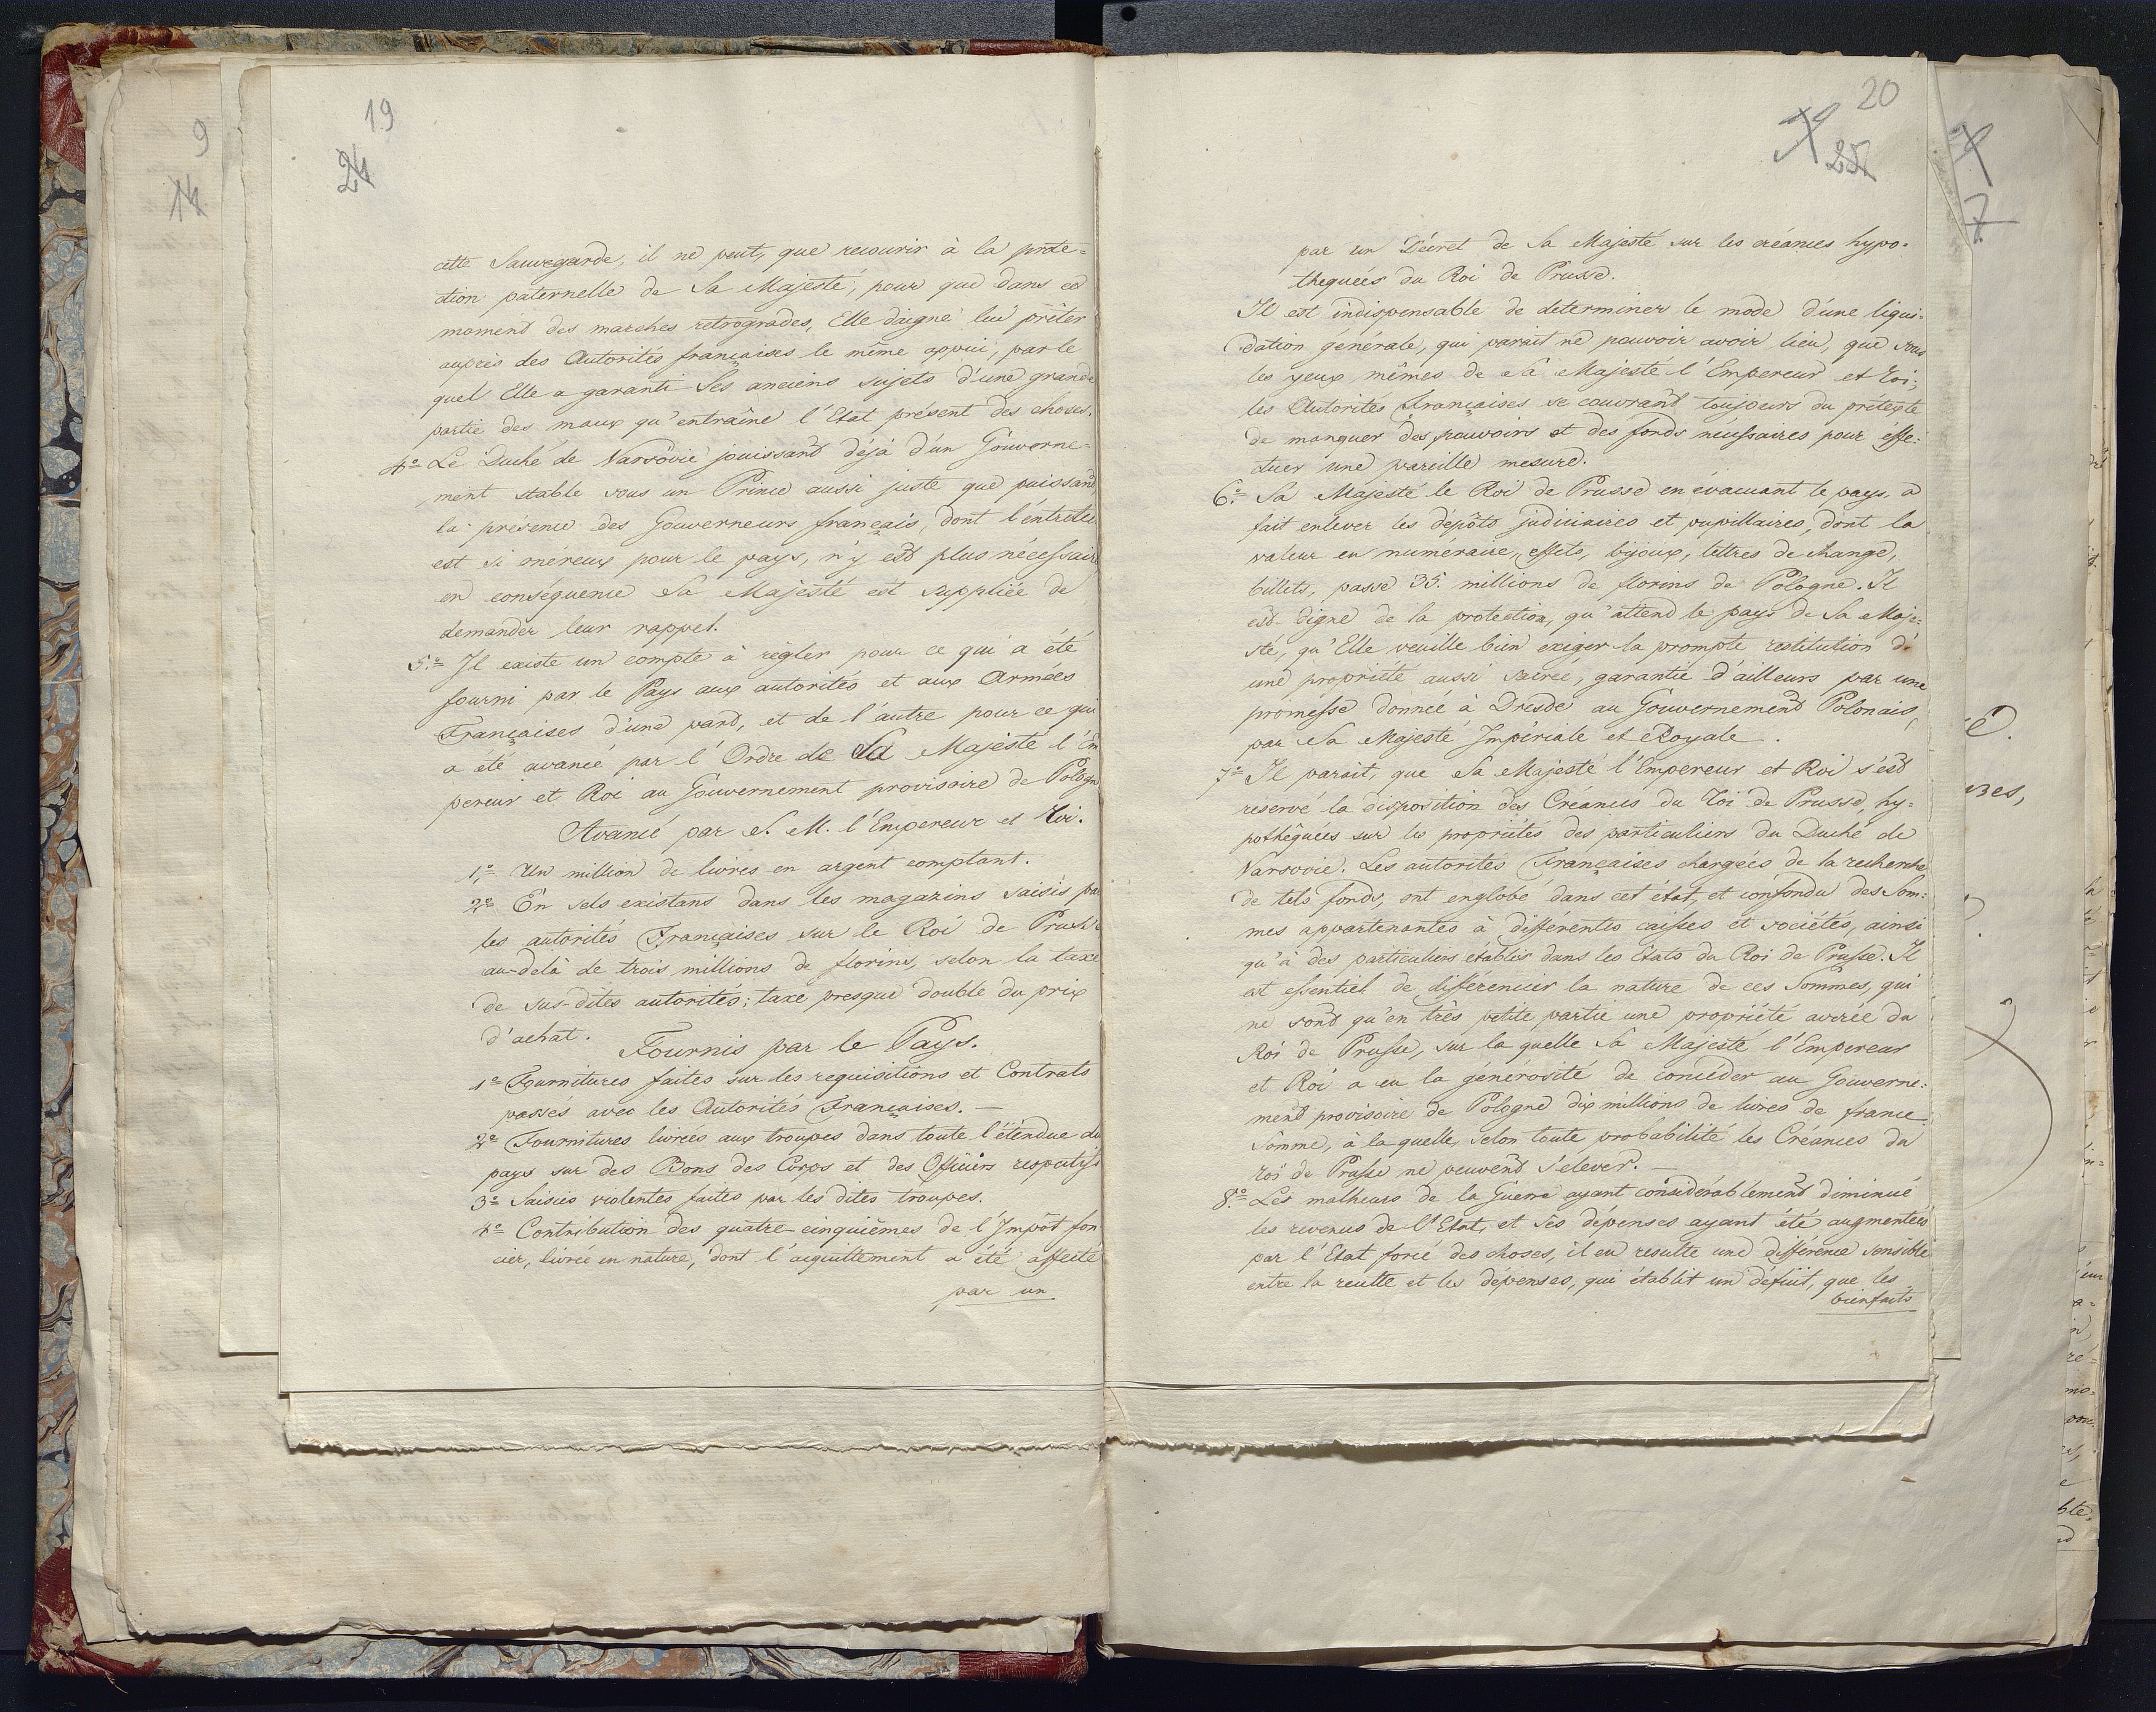 19
24
cette Sauvegarde, il ne peut, que recourir à la prote=
ction paternelle de Sa Majesté, pour que dans ce
moment des marches retrogrades, Elle daigne lui prêter
aupris des Autorités françaises le même appui, par le
quel Elle a garanti Ses anciens sujets d'une grande
partie des maux qu'entraîne l'Etat présent des choses.
4º Le Duché de Varsovie jouissant déjà d'un Gouverne=
ment stable sous un Prince aussi juste que puissant
la présence des Gouverneurs français, dont l'entretien
est si onéreux pour le pays, n'y est plus nécessaire
en conséquence Sa Majesté est suppliée de
demander leur rappel.
5º Il existe un compte à régler pour ce qui a été
fourni par le Pays aux autorités et aux Armées
Françaises d'une part, et de l'autre pour ce qui
a été avancé par l'Ordre de Sa Majesté l'Em
pereur et Roi au Gouvernement provisoire de Pologne
Avancé par S. M. l'Empereur et Roi.
1º Un million de livres en argent comptant.
2º En sels existans dans les magazins saisis par
les autorités Françaises sur le Roi de Prusse
au-delà de trois millions de florins, selon la taxe
de sus-dites autorités; taxe presque double du prix
d'achat.
Fournis par le Pays.
1º Fournitures faites sur les requisitions et Contrats
passés avec les Autorités Françaises. —
2º Fournitures livrées aux troupes dans toute l'étendue du
pays sur des Bons des Corps et des Officiers respectifs
3º Saisies violentes faites par les dites troupes.
4º Contribution des quatre-cinquièmes de l'Impôt fon
cier, livrée en nature, dont l'acquittement a été affecté
par un
20
25
par un Décret de Sa Majesté sur les créances hypo=
thequées du Roi de Prusse.
Il est indispensable de determiner le mode d'une liqui=
dation générale, qui parait ne pouvoir avoir lieu, que sous
les yeux mêmes de Sa Majesté l'Empereur et Roi;
les Autorités Françaises se couvrant toujours du prétexte
de manquer des pouvoirs et des fonds nécessaires pour éffe=
ctuer une pareille mesure.
6º Sa Majesté le Roi de Prusse en évacuant le pays, a
fait enlever les dépôts judiciaires et pupillaires, dont la
valeur en numéraire, effets, bijoux, lettres de change,
billets, passe 35. millions de florins de Pologne. Il
est digne de la protection, qu'attend le pays de Sa Maje=
sté, qu'Elle veuille bien exiger la prompte restitution d'
une propriété aussi sacrée, garantie d'ailleurs par une
promesse donnée à Dresde au Gouvernement Polonais,
par Sa Majesté Impériale et Royale.
7º Il parait, que Sa Majesté l'Empereur et Roi s'est
réservé la disposition des Créances du Roi de Prusse, hy=
pothêquées sur les propriétés des particuliers du Duché de
Varsovie. Les autorités Françaises chargées de la recherche
de tels fonds, ont englobé dans cet état, et confondu des Som=
mes appartenantes à différentes caisses et sociétés, ainsi
qu'à des particuliers établis dans les Etats du Roi de Prusse. Il
est essentiel de différencier la nature de ces Sommes, qui
ne sont qu'en très petite partie une propriété avérée du
Roi de Prusse, sur la quelle Sa Majesté l'Empereur
et Roi a eu la générosité de concéder au Gouverne=
ment provisoire de Pologne dix millions de livres de france
Somme, à la quelle, selon toute probabilité les Créances du
roi de Prusse ne peuvent s'élever. —
8º Les malheurs de la Guerre ayant considérablement diminué
les revenus de l'Etat, et Ses dépenses ayant été augmentées
par l'Etat forcé des choses, il en resulte une différence sensible
entre la recette et les dépenses, qui établit un déficit, que les
bienfaits
9
14
7